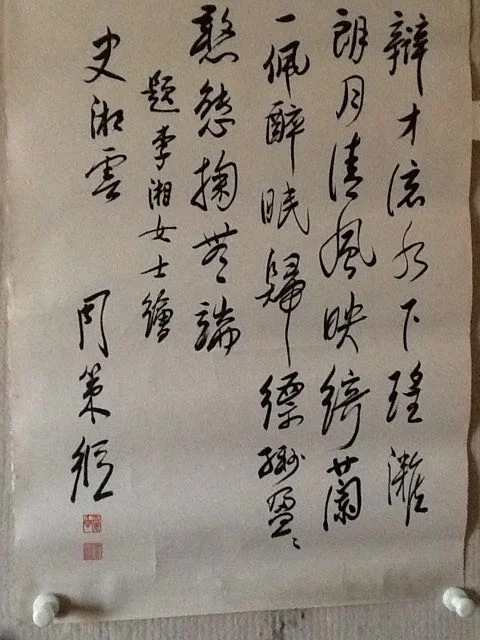 辯才水下瑤灘
朗月清風映綺蘭
一佩醉眠歸縹緲盈々
憨態掬無端
題李湘女士繪
史湘雲 周策縱